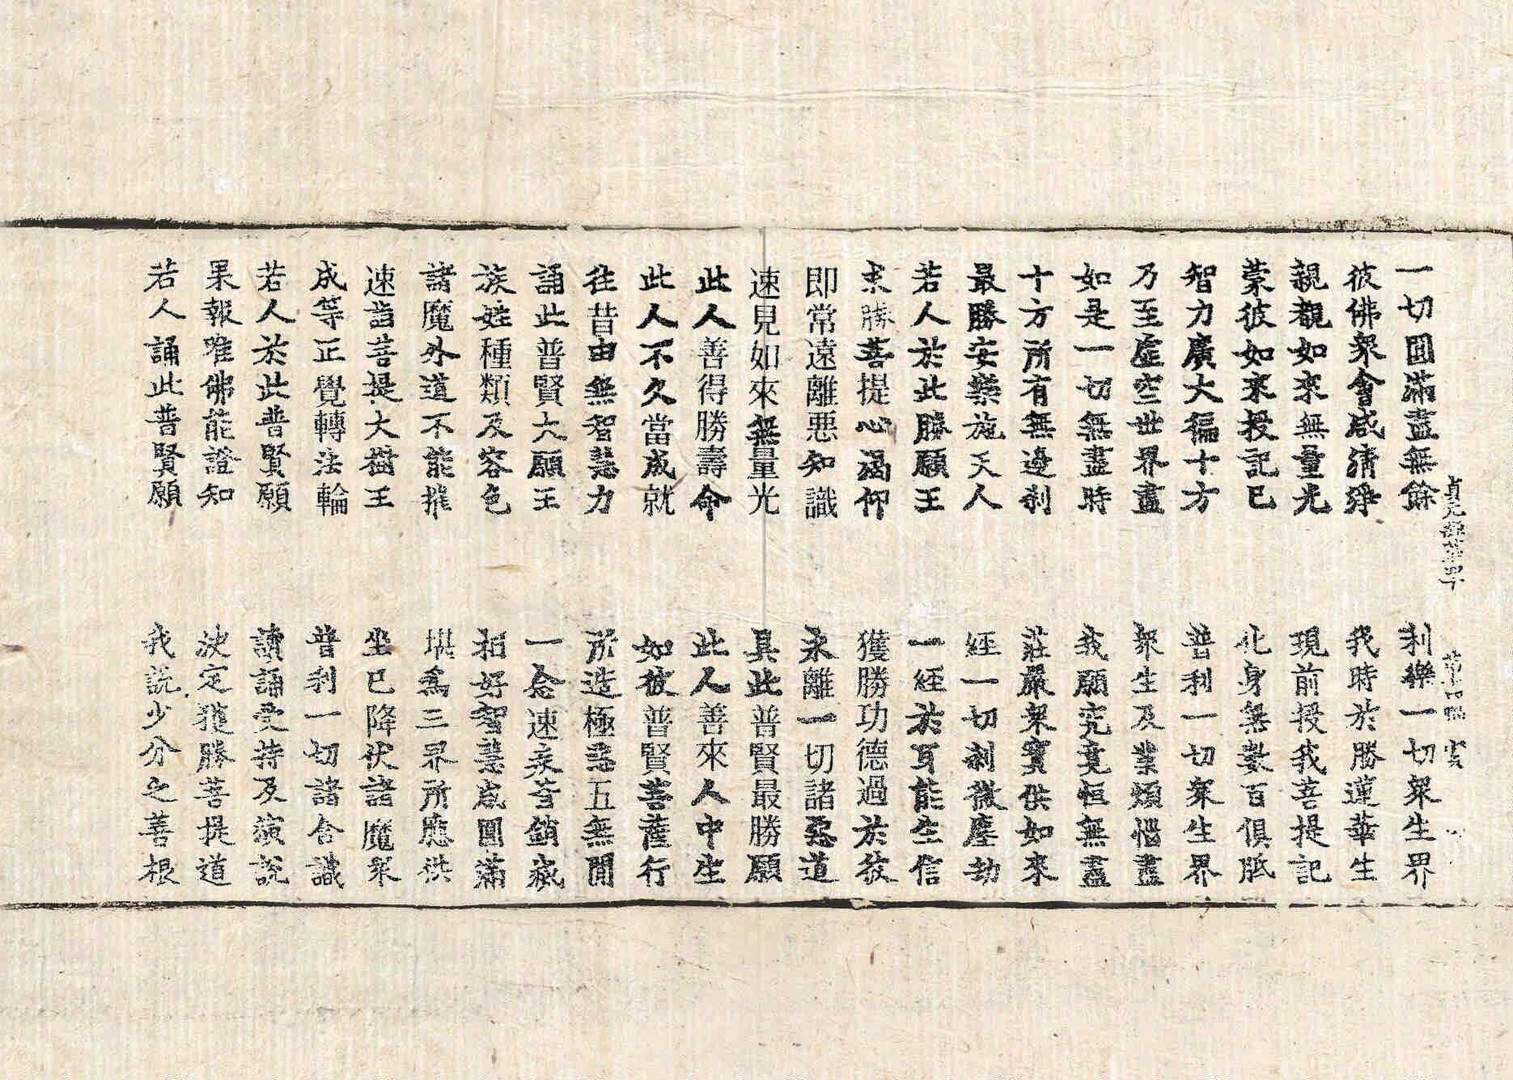 一切圓滿盡無餘　利樂一切衆生界
彼佛衆會咸清淨　我時於勝蓮華生
親覩如來無量光　現前授我菩提記
蒙彼如來授記已　化身無數百俱胝
智力廣大徧十方　普利一切衆生界
乃至虛空世界盡　衆生及業煩惱盡
如是一切無盡時　我願究竟恒無盡
十方所有無邊刹　莊嚴衆寶供如來
最勝安樂施天人　經一切刹微塵劫
若人於此勝願王　一經於耳能生信
求勝菩提心渴仰　獲勝功德過於彼
即常遠離惡知識　永離一切諸惡道
速見如來無量光　具此普賢最勝願
此人善得勝壽命　此人善來人中生
此人不久當成就　如彼普賢菩薩行
往昔由無智慧力　所造極惡五無間
誦此普賢大願王　一念速疾皆銷滅
族姓種類及容色　相好智慧咸圓滿
諸魔外道不能摧　堪爲三界所應供
速詣菩提大樹王　坐已降伏諸魔衆
成等正覺轉法輪　普利一切諸含識
若人於此普賢願　讀誦受持及演說
果報唯佛能證知　決定獲勝菩提道
若人誦此普賢願　我說少分之善根